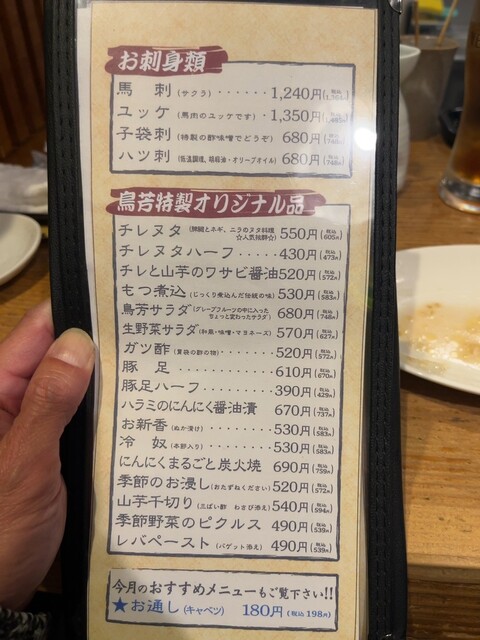 お刺身類
馬 刺 (サクラ) ・・・・・・ 1,240円
ユッケ (馬肉のユッケです) ・1,350円
子袋刺 (特製の酢味噌でどうぞ) 680円(税込748円)
ハツ刺 (低温調理、胡椒油・オリーブオイル) 680円(税込748円)
鳥芳特製オリジナル品
チレヌタ (脾臓とネギ、ニラのヌタ料理 ☆人気抜群☆) 550円(税込605円)
チレヌタハーフ・・・・・・ 430円(税込473円)
チレと山芋のワサビ醤油 520円(税込572円)
もつ煮込 (じっくり煮込んだ伝統の味) 530円(税込583円)
鳥芳サラダ (グレープフルーツの中に入った ちょっと変わったサラダ) 680円(税込748円)
生野菜サラダ (和風・味噌・マヨネーズ) 570円(税込627円)
ガツ酢 (胃袋の酢の物)・・・・・・ 520円(税込572円)
豚 足 ・・・・・・・・・・ 610円(税込670円)
豚足ハーフ・・・・・・・・ 390円(税込429円)
ハラミのにんにく醤油漬 670円(税込737円)
お新香 (ぬか漬け) ・・・・・・・ 530円(税込583円)
冷 奴 (本節入り) ・・・・・・・ 530円(税込583円)
にんにくまるごと炭火焼 690円(税込759円)
季節のお浸し (おたずねください) 520円(税込572円)
山芋千切り (三ばい酢 わさび添え) 540円(税込594円)
季節野菜のピクルス 490円(税込539円)
レバペースト (バゲット添え) 490円(税込539円)
今月のおすすめメニューもご覧下さい!!
★お通し (キャベツ) 180円 (税込198円)